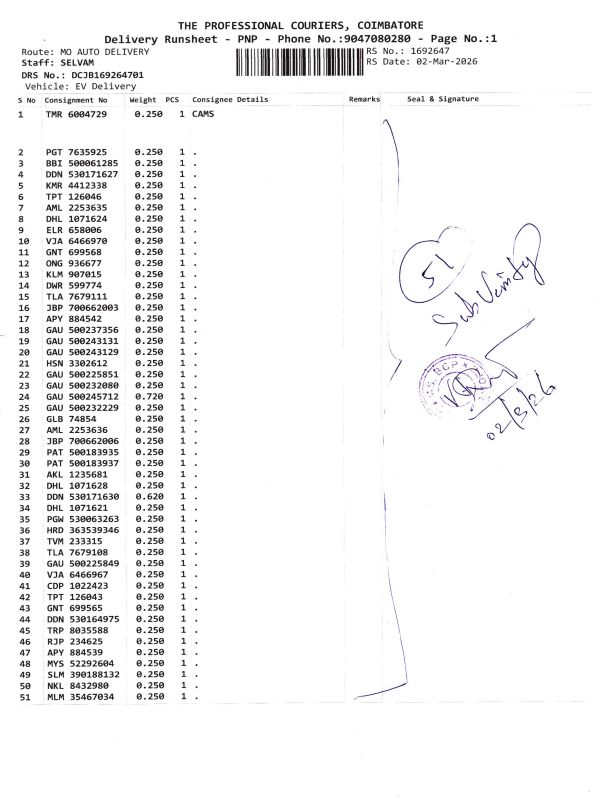 THE PROFESSIONAL COURIERS, COIMBATORE
Delivery Runsheet - PNP - Phone No.:9047080280 - Page No.:1
Route: MO AUTO DELIVERY
RS No.: 1692647
Staff: SELVAM
RS Date: 02-Mar-2026
DRS No.: DCJB169264701
Vehicle: EV Delivery
S No Consignment No Weight PCS Consignee Details Remarks Seal & Signature
1 TMR 6004729 0.250 1 CAMS
2 PGT 7635925 0.250 1 .
3 BBI 500061285 0.250 1 .
4 DDN 530171627 0.250 1 .
5 KMR 4412338 0.250 1 .
6 TPT 126046 0.250 1 .
7 AML 2253635 0.250 1 .
8 DHL 1071624 0.250 1 .
9 ELR 658006 0.250 1 .
10 VJA 6466970 0.250 1 .
11 GNT 699568 0.250 1 .
12 ONG 936677 0.250 1 .
13 KLM 907015 0.250 1 .
14 DWR 599774 0.250 1 .
15 TLA 7679111 0.250 1 .
16 JBP 700662003 0.250 1 .
17 APY 884542 0.250 1 .
18 GAU 500237356 0.250 1 .
19 GAU 500243131 0.250 1 .
20 GAU 500243129 0.250 1 .
21 HSN 3302612 0.250 1 .
22 GAU 500225851 0.250 1 .
23 GAU 500232080 0.250 1 .
24 GAU 500245712 0.720 1 .
25 GAU 500232229 0.250 1 .
26 GLB 74854 0.250 1 .
27 AML 2253636 0.250 1 .
28 JBP 700662006 0.250 1 .
29 PAT 500183935 0.250 1 .
30 PAT 500183937 0.250 1 .
31 AKL 1235681 0.250 1 .
32 DHL 1071628 0.250 1 .
33 DDN 530171630 0.620 1 .
34 DHL 1071621 0.250 1 .
35 PGW 530063263 0.250 1 .
36 HRD 363539346 0.250 1 .
37 TVM 233315 0.250 1 .
38 TLA 7679108 0.250 1 .
39 GAU 500225849 0.250 1 .
40 VJA 6466967 0.250 1 .
41 CDP 1022423 0.250 1 .
42 TPT 126043 0.250 1 .
43 GNT 699565 0.250 1 .
44 DDN 530164975 0.250 1 .
45 TRP 8035588 0.250 1 .
46 RJP 234625 0.250 1 .
47 APY 884539 0.250 1 .
48 MYS 52292604 0.250 1 .
49 SLM 390188132 0.250 1 .
50 NKL 8432980 0.250 1 .
51 MLM 35467034 0.250 1 .
51
02/3/26